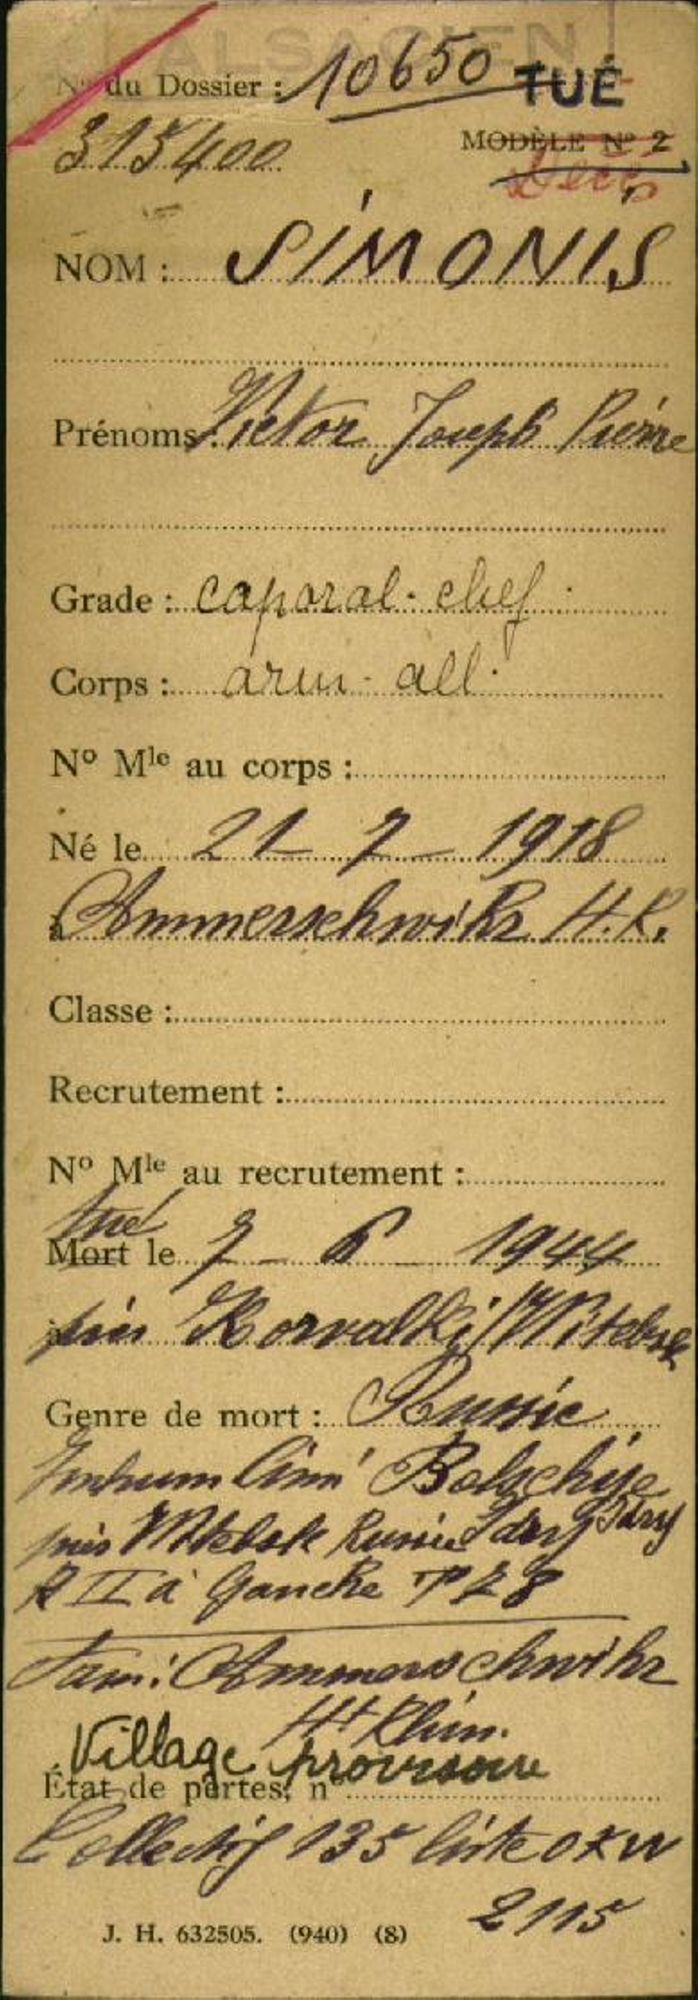 ALSACIEN
N° du Dossier : 10650 TUÉ
315400 MODÈLE N° 2
Décès
NOM : SIMONIS
Prénoms : Victor Joseph Pierre
Grade : caporal-chef
Corps : arm. all.
N° Mle au corps :
Né le 21 - 7 - 1918
à Ammerschwihr H.R.
Classe :
Recrutement :
N° Mle au recrutement :
tué
Mort le 7 - 6 - 1944
à près Korvalki/Vitebsk
Genre de mort : Russie
Inhum Cim' Bolschije
près Witebsk Russie
R II à gauche T 28
Fam: Ammerschwihr
Ht Rhin.
Village provisoire
État de pertes, n°
Collectif 135 liste OKW
2115
J. H. 632505. (940) (8)